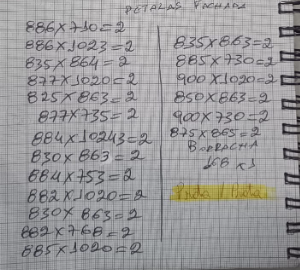 886x710=2
886x1023=2
835x864=2
877x1020=2
825x863=2
877x735=2
884x10243=2
830x863=2
884x753=2
882x1020=2
830x863=2
882x768=2
885x1020=2
835x863=2
885x730=2
900x1020=2
850x863=2
900x730=2
875x865=2
BORRACHA
168 x 1